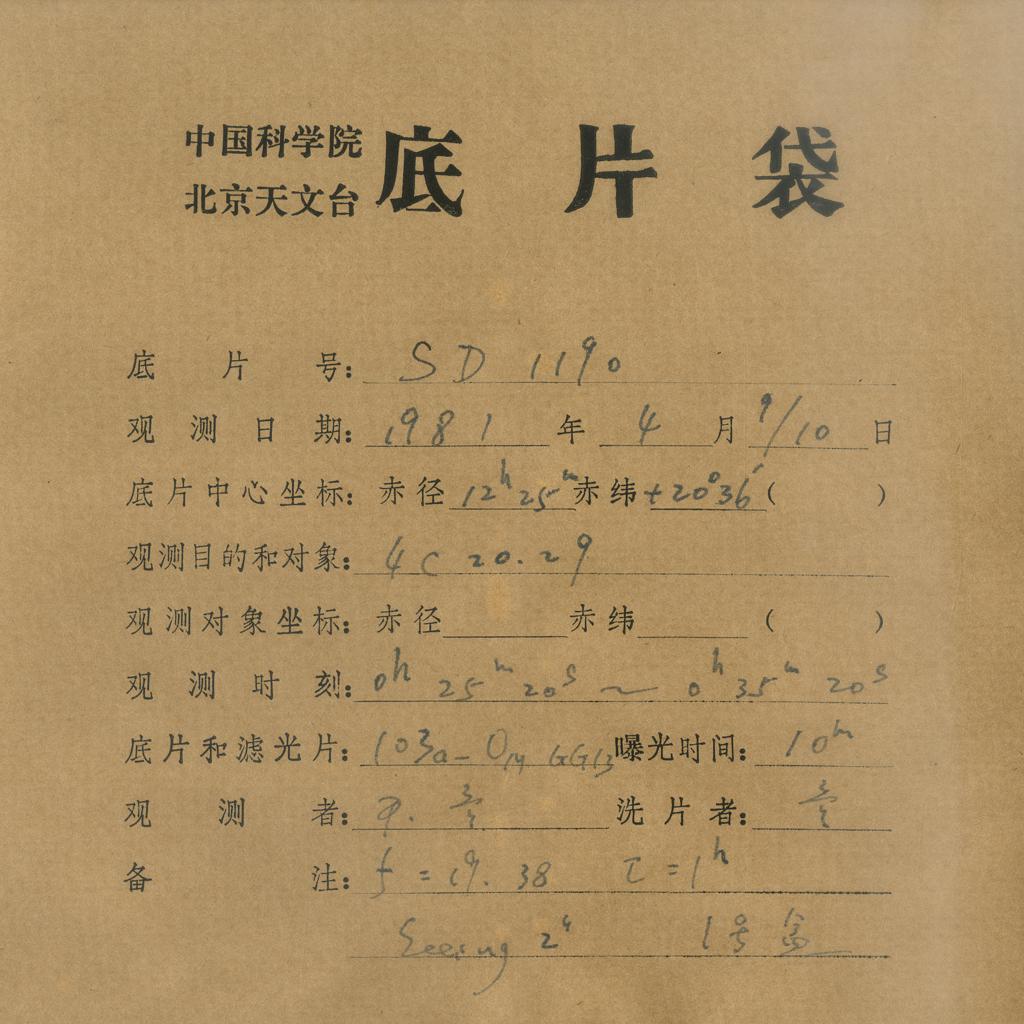 中国科学院
北京天文台
底片袋
底片号: SD 1190
观测日期: 1981年 4月 9/10日
底片中心坐标: 赤径 12h 25m 赤纬 +20°36′ ( )
观测目的和对象: 4C 20.29
观测对象坐标: 赤径 赤纬 ( )
观测时刻: 0h 25m 20s ~ 0h 35m 20s
底片和滤光片: 103a-O GG13 曝光时间: 10m
观测者: 洗片者:
备注: f = 19.38 τ = 1h
Seeing 2" 1号盒